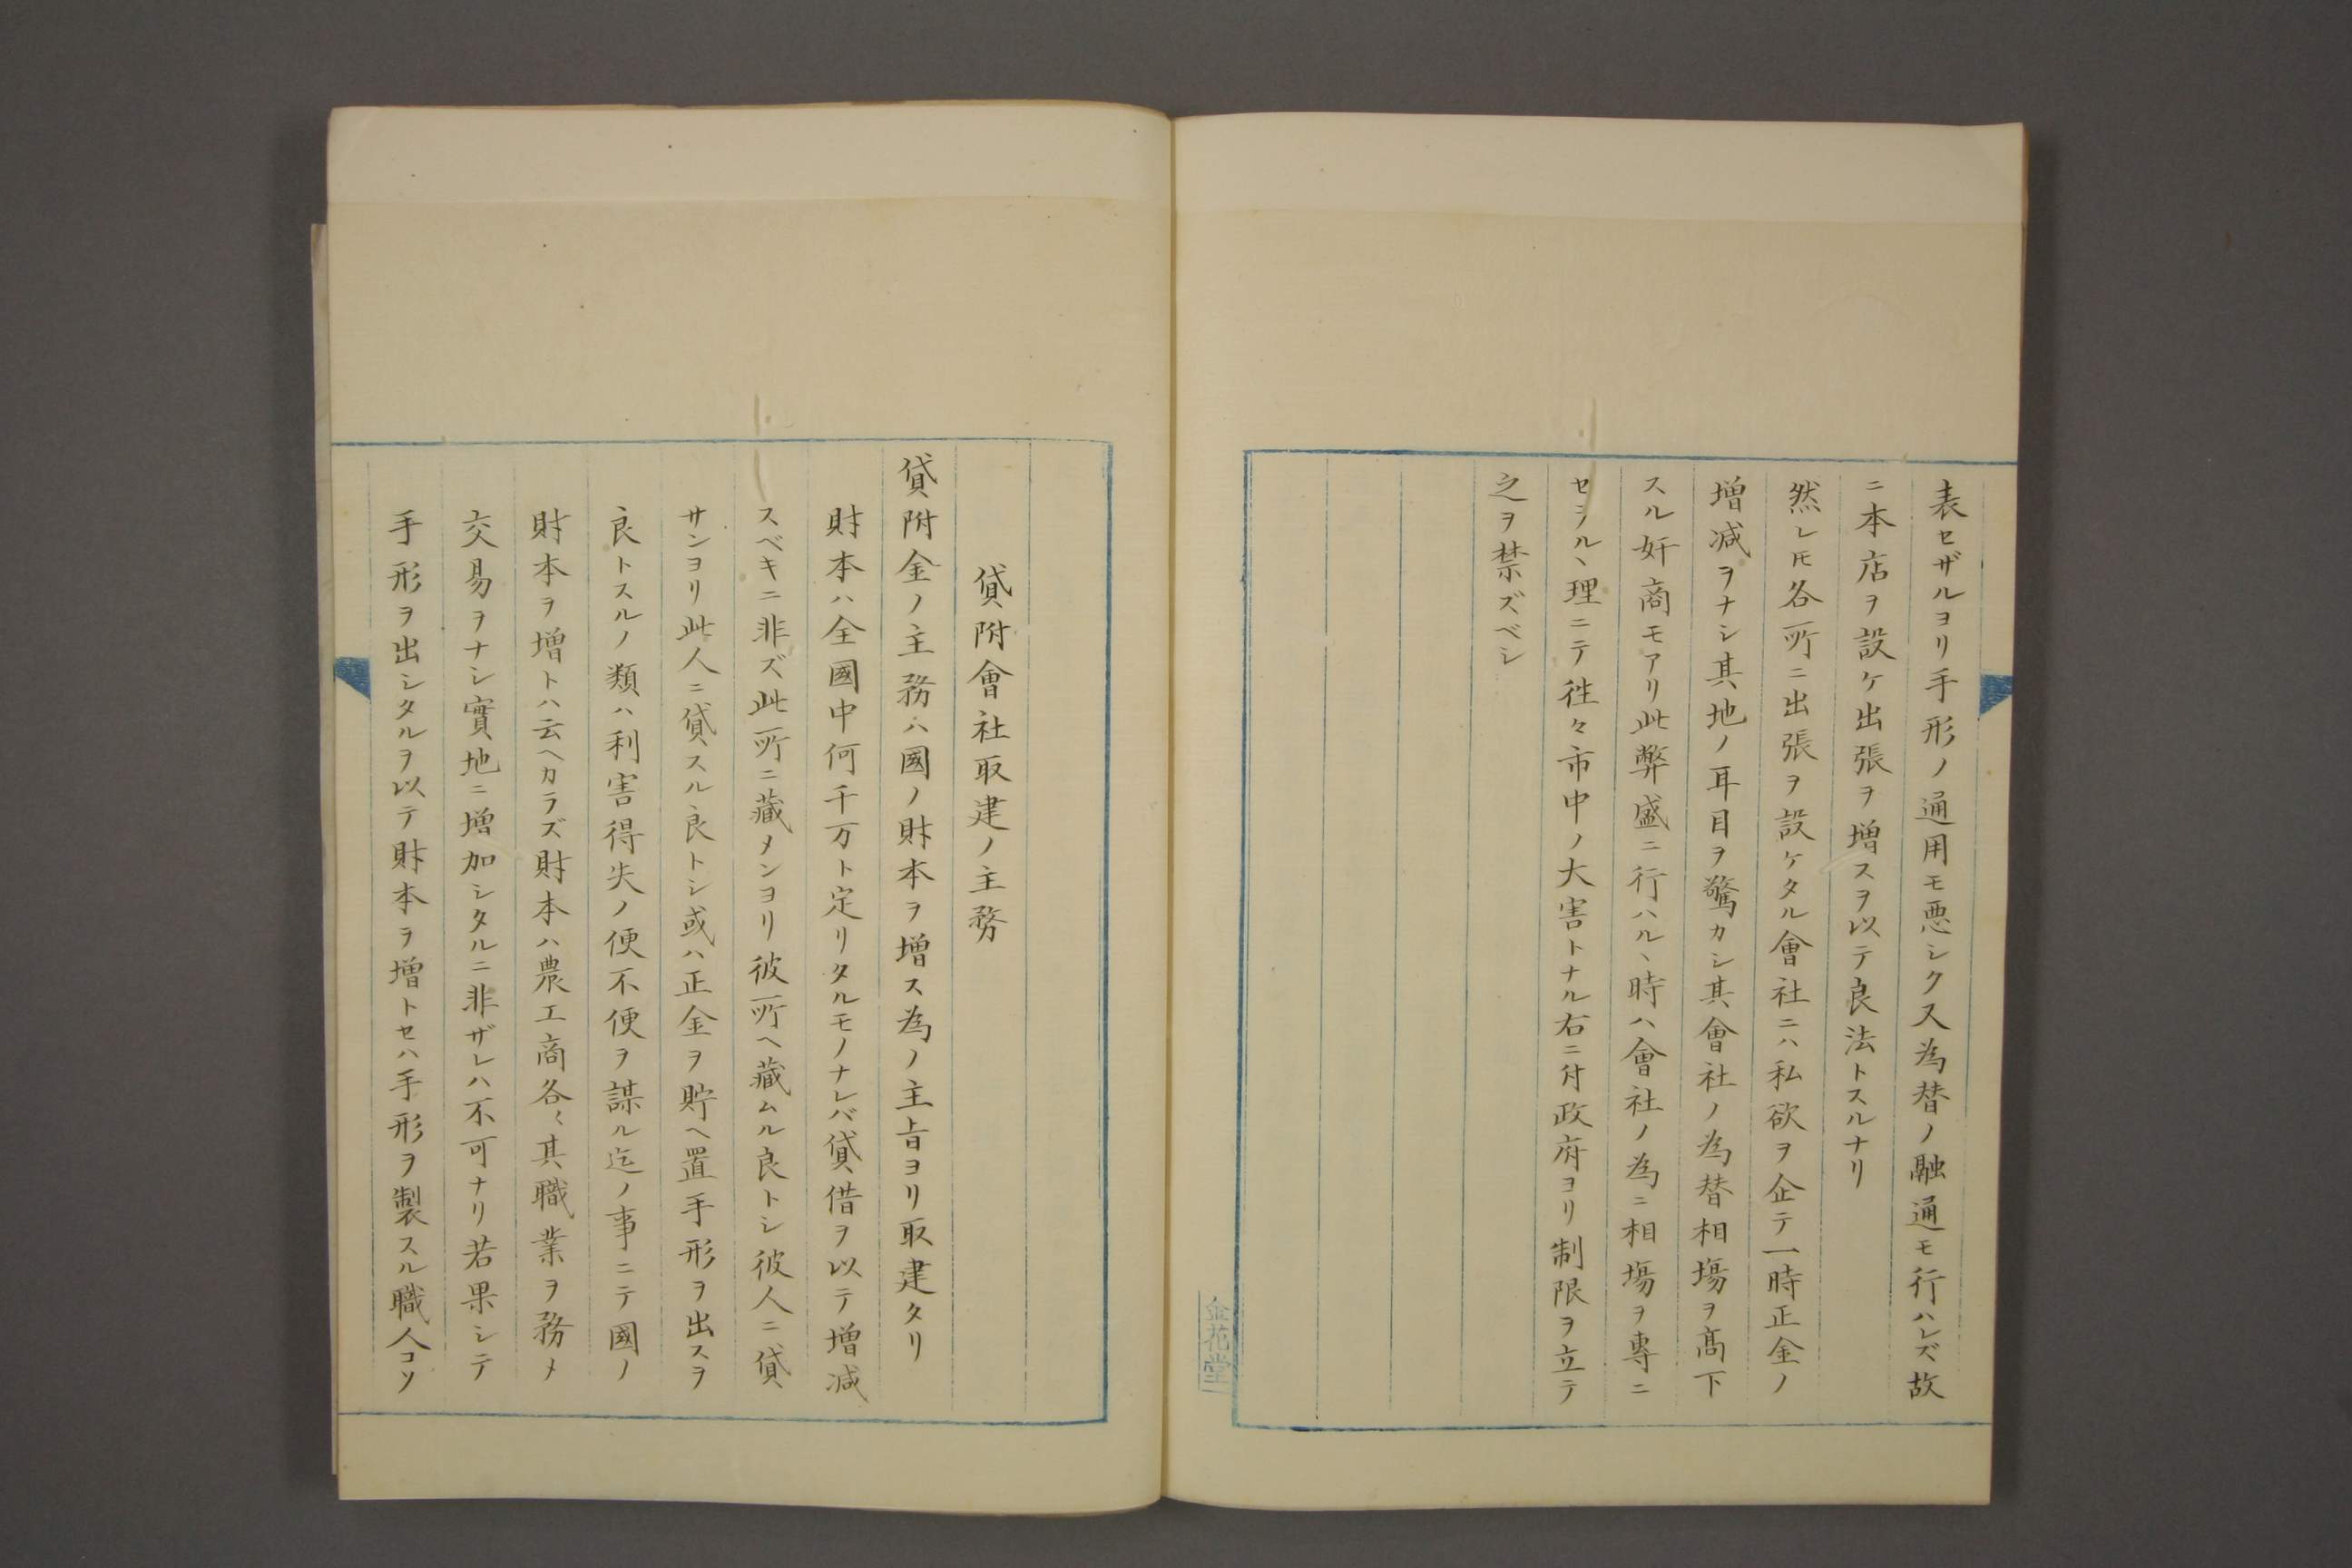 表セザルヨリ手形ノ通用モ悪シク又為替ノ融通モ行ハレズ故
ニ本店ヲ設ケ出張ヲ増スヲ以テ良法トスルナリ
然レ𪜈各所ニ出張ヲ設ケタル會社ニハ私欲ヲ企テ一時正金ノ
増減ヲナシ其地ノ耳目ヲ驚カシ其會社ノ為替相塲ヲ髙下
スル奸商モアリ此弊盛ニ行ハルヽ時ハ會社ノ為ニ相塲ヲ專ニ
セラルヽ理ニテ往々市中ノ大害トナル右ニ付政府ヨリ制限ヲ立テ
之ヲ禁ズベシ
金花堂
貸附會社取建ノ主務
貸附金ノ主務ハ國ノ財本ヲ増ス為ノ主旨ヨリ取建タリ
財本ハ全國中何千万ト定リタルモノナレバ貸借ヲ以テ増减
スベキニ非ズ此所ニ藏メンヨリ彼所ヘ藏ムル良トシ彼人ニ貸
サンヨリ此人ニ貸スル良トシ或ハ正金ヲ貯ヘ置手形ヲ出スヲ
良トスルノ類ハ利害得失ノ便不便ヲ謀ル迄ノ事ニテ國ノ
財本ヲ増トハ云ヘカラズ財本ハ農工商各々其職業ヲ務メ
交易ヲナシ實地ニ増加シタルニ非ザレハ不可ナリ若果シテ
手形ヲ出シタルヲ以テ財本ヲ増トセハ手形ヲ製スル職人コソ